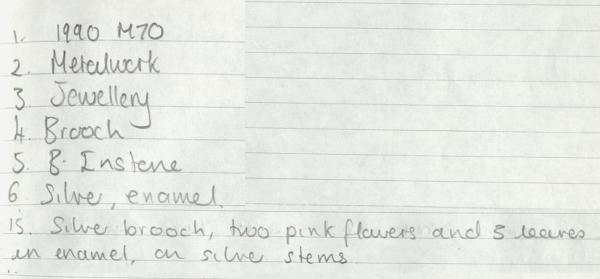 1. 1990 M70
2. Metalwork
3. Jewellery
4. Brooch
5. B. Instone
6 Silver, enamel.
15. Silver brooch, two pink flowers and 5 leaves
in enamel, on silver stems